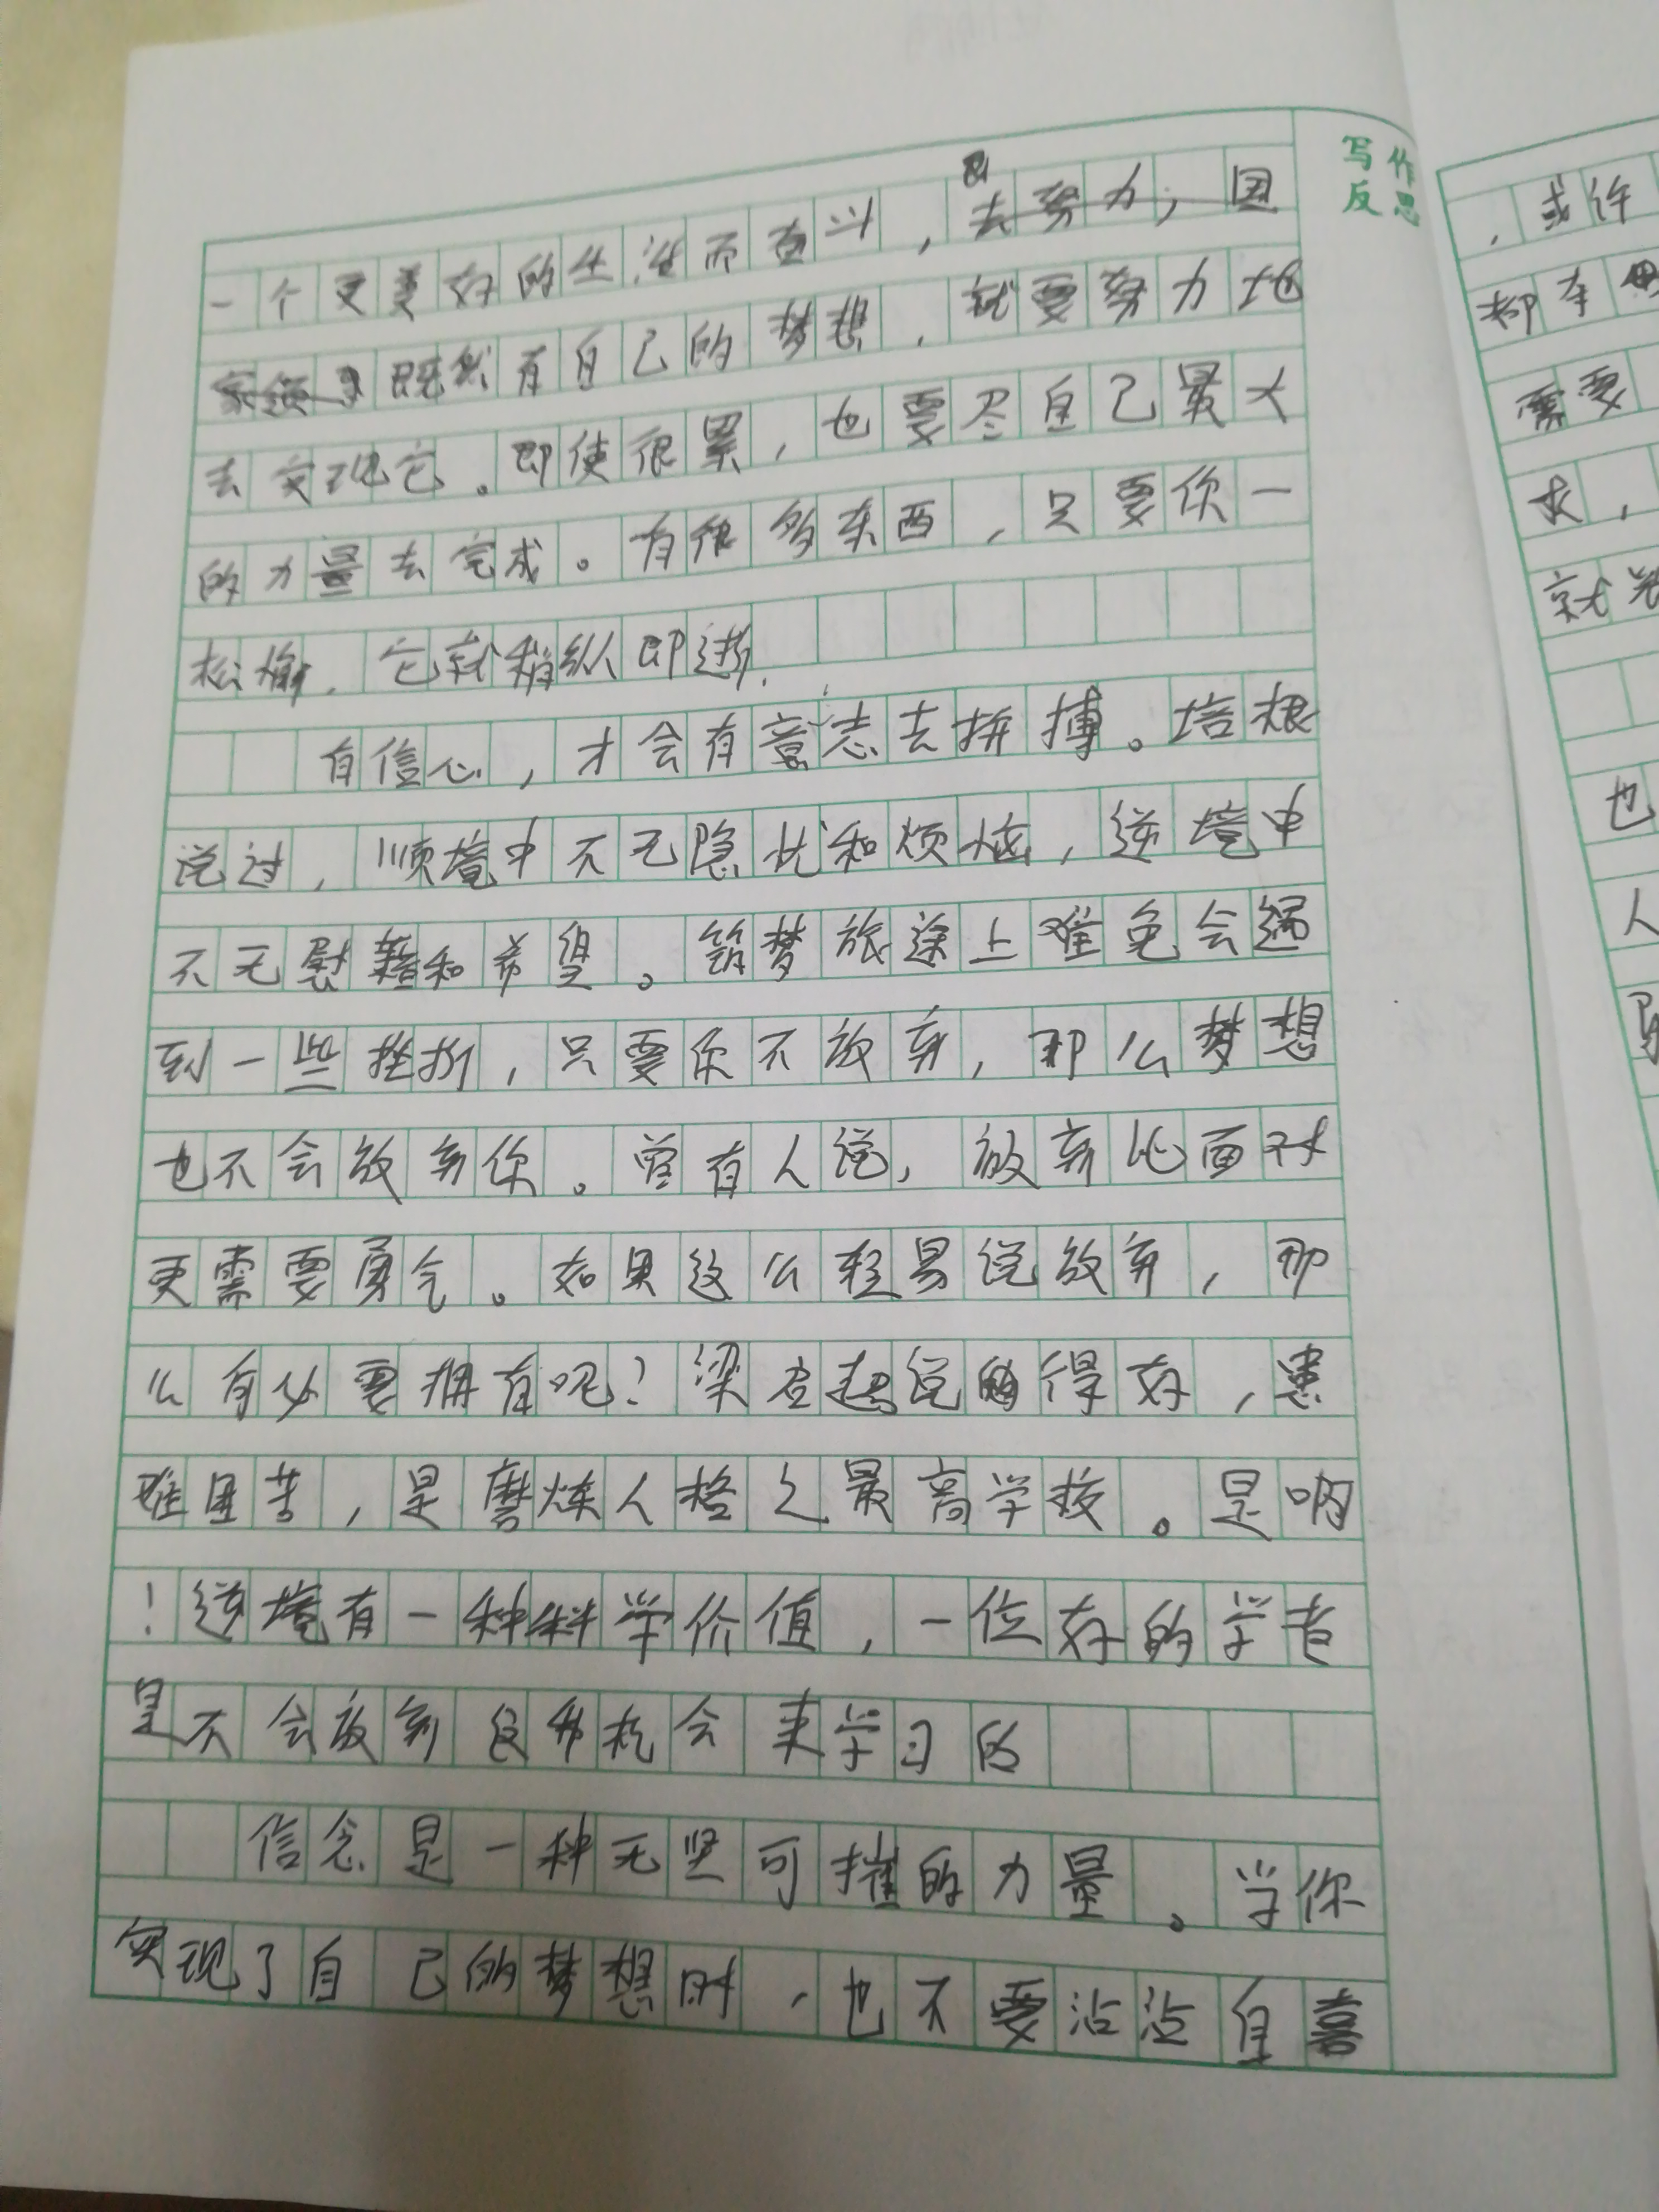 一个更美好的生活而奋斗，去努力，因
既然有自己的梦想，就要努力地
去实现它。即使很累，也要尽自己最大
的力量去完成。有很多东西，只要你一
松懈，它就稍纵即逝.
有信心，才会有意志去拼搏。培根
说过，顺境中不无隐忧和烦恼，逆境中
不无慰藉和希望。筑梦旅途上难免会遇
到一些挫折，只要你不放弃，那么梦想
也不会放弃你。曾有人说，放弃比面对
更需要勇气。如果这么轻易说放弃，那
么有必要拥有呢？梁启超说得好，患
难困苦，是磨炼人格之最高学校。是啊
！逆境有一种科学价值，一位好的学者
是不会放弃这种机会来学习的
信念是一种无坚可摧的力量。当你
实现了自己的梦想时，也不要沾沾自喜
写作
反思
，或许
都有
需要
求，
就
也
人